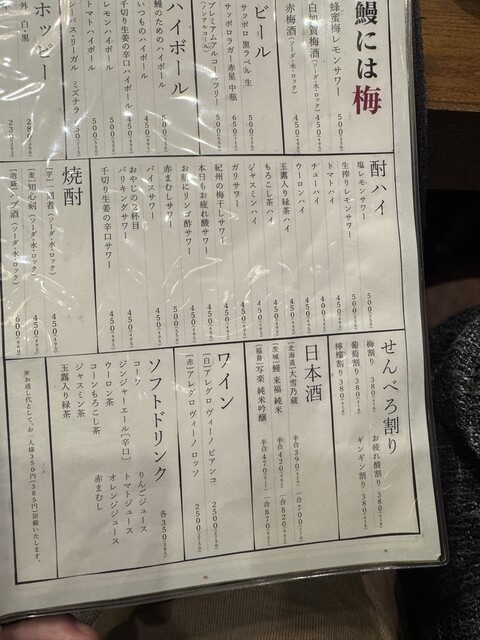 鰻には梅
蜂蜜梅レモンサワー 500
白加賀梅酒(ソーダ・水・ロック)
赤梅酒(ソーダ・水・ロック)
ビール
サッポロ黒ラベル 生 500
サッポロラガー赤星 中瓶 650
プレミアムアルコールフリー
(ノンアルコール)
ハイボール
鰻のためのハイボール 500
いつものハイボール 450
千切り生姜の辛口ハイボール
レモンハイボール 500
トマトハイボール 500
シーバス・リーガル ミズナラ
ホッピー
外 白・黒
酎ハイ
塩レモンサワー 500
生搾りレモンサワー 500
トマトハイ 450
チューハイ 400
ウーロンハイ 450
玉露入り緑茶ハイ 450
もろこし茶ハイ 450
ジャスミンハイ 450
ガリサワー 450
紀州の梅干しサワー 450
本日もお疲れ酸サワー 450
お肌にリンゴ酢サワー 450
赤まむしサワー 500
バイスサワー 450
おやじの2杯目 450
バリキングサワー 450
千切り生姜の辛口サワー 450
焼酎
(ソーダ・水・ロック) 450
[麦]知心剣(ソーダ・水・ロック) 450
[泡盛]ハブ酒(ソーダ・水・ロック) 600
せんべろ割り
梅割り 380
葡萄割り 380
檸檬割り 380
お疲れ酸割り 380
ギンギン割り 380
日本酒
[北海道]大雪乃蔵 半合390 一合700
[茨城]鰻 来福 純米 半合420 一合820
[福島]写楽 純米吟醸 半合470 一合870
ワイン
[白]アレグロ ヴィーノ ビアンコ 2500
[赤]アレグロ ヴィーノ ロッソ 2500
ソフトドリンク 各350
コーラ
ジンジャーエール[辛口]
ウーロン茶
コーンもろこし茶
ジャスミン茶
玉露入り緑茶
りんごジュース
トマトジュース
オレンジジュース
赤まむし
※お通し代として、お一人様350円(385円)頂戴いたします。